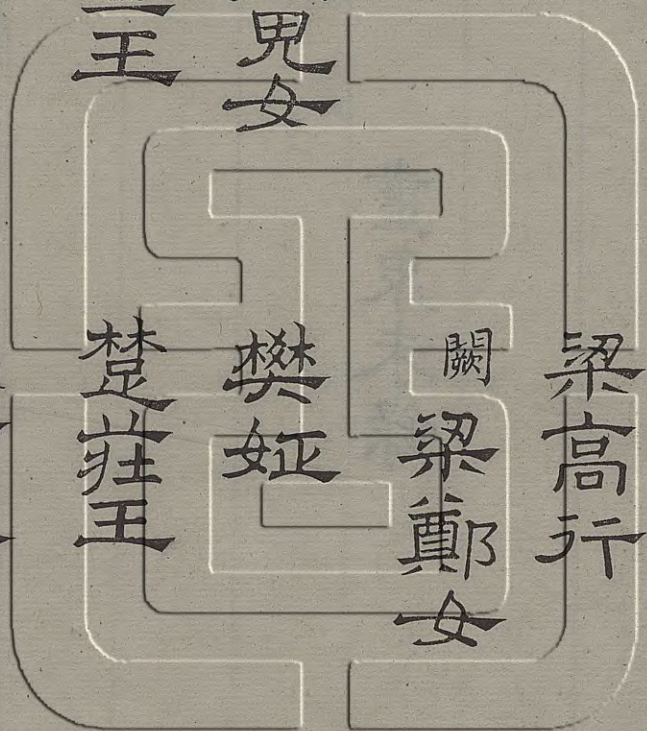 梁高行
闕 梁鄭女
女
樊姬
王
楚莊王